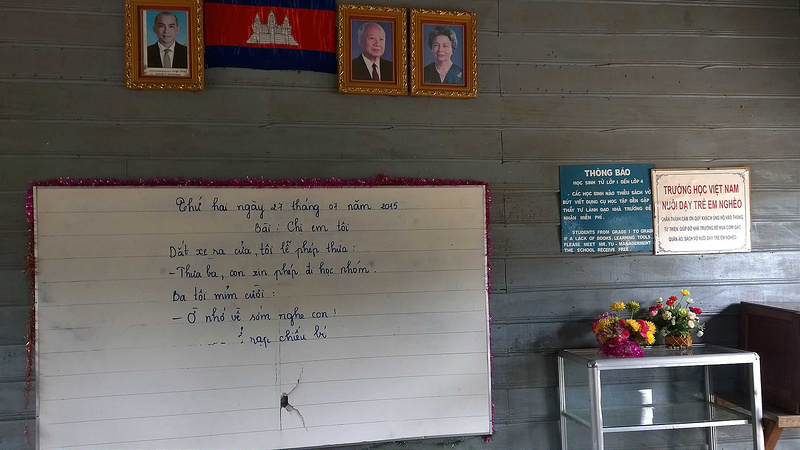 Thứ hai ngày 27 tháng 07 năm 2015
Bài: Chị em tôi
Dắt xe ra cửa, tôi lễ phép thưa:
- Thưa ba, con xin phép đi học nhóm.
Ba tôi mỉm cười:
- Ờ nhớ về sớm nghe con!
rạp chiếu bí
THÔNG BÁO
HỌC SINH TỪ LỚP 1 ĐẾN LỚP 4
- CÁC HỌC SINH NÀO THIẾU SÁCH VỞ
BÚT VIẾT DỤNG CỤ HỌC TẬP ĐẾN GẶP
THẦY TƯ LÃNH ĐẠO NHÀ TRƯỜNG ĐỂ
NHẬN MIỄN PHÍ.
STUDENTS FROM GRADE 1 TO GRAD
IF A LACK OF BOOKS, LEARNING TOOLS,
PLEASE MEET MR.TU - MANAGERMENT
THE SCHOOL RECEIVE FREE
TRƯỜNG HỌC VIỆT NAM
NUÔI DẠY TRẺ EM NGHÈO
CHÂN THÀNH CẢM ƠN QUÝ KHÁCH ỦNG HỘ VÀO THÙNG
TỪ THIỆN, GIÚP ĐỠ NHÀ TRƯỜNG ĐỂ MUA CƠM GẠO
QUẦN ÁO, SÁCH VỞ NUÔI DẠY TRẺ EM NGHÈO